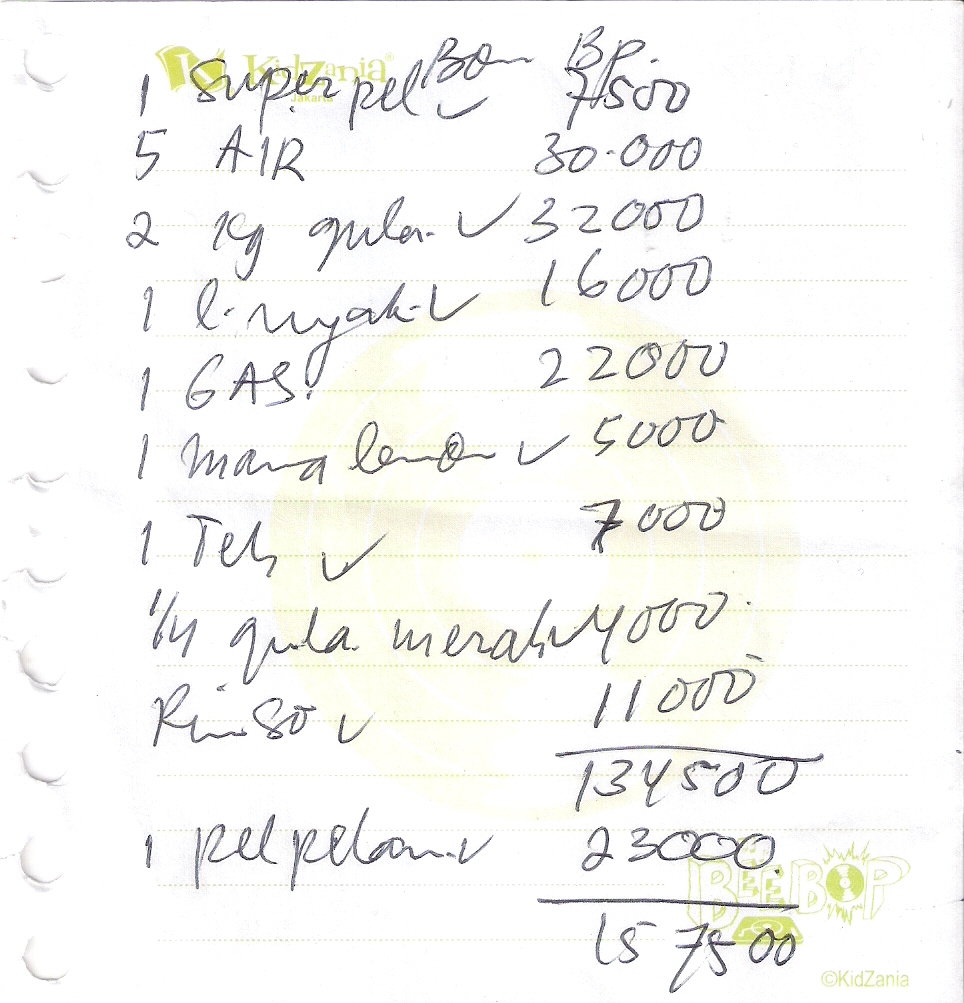 KidZania®
Jakarta
Bon BP.
1 Superpel ✓ 7500
5 AIR 30.000
2 Kg gula. ✓ 32000
1 l. nyak. ✓ 16000
1 GAS. 22000
1 mama lemon ✓ 5000
1 Teh ✓ 7000
1/4 gula merah ✓ 4000
Rinso ✓ 11000
134500
1 pel pelan. ✓ 23000
157500
BEEBOP
©KidZania